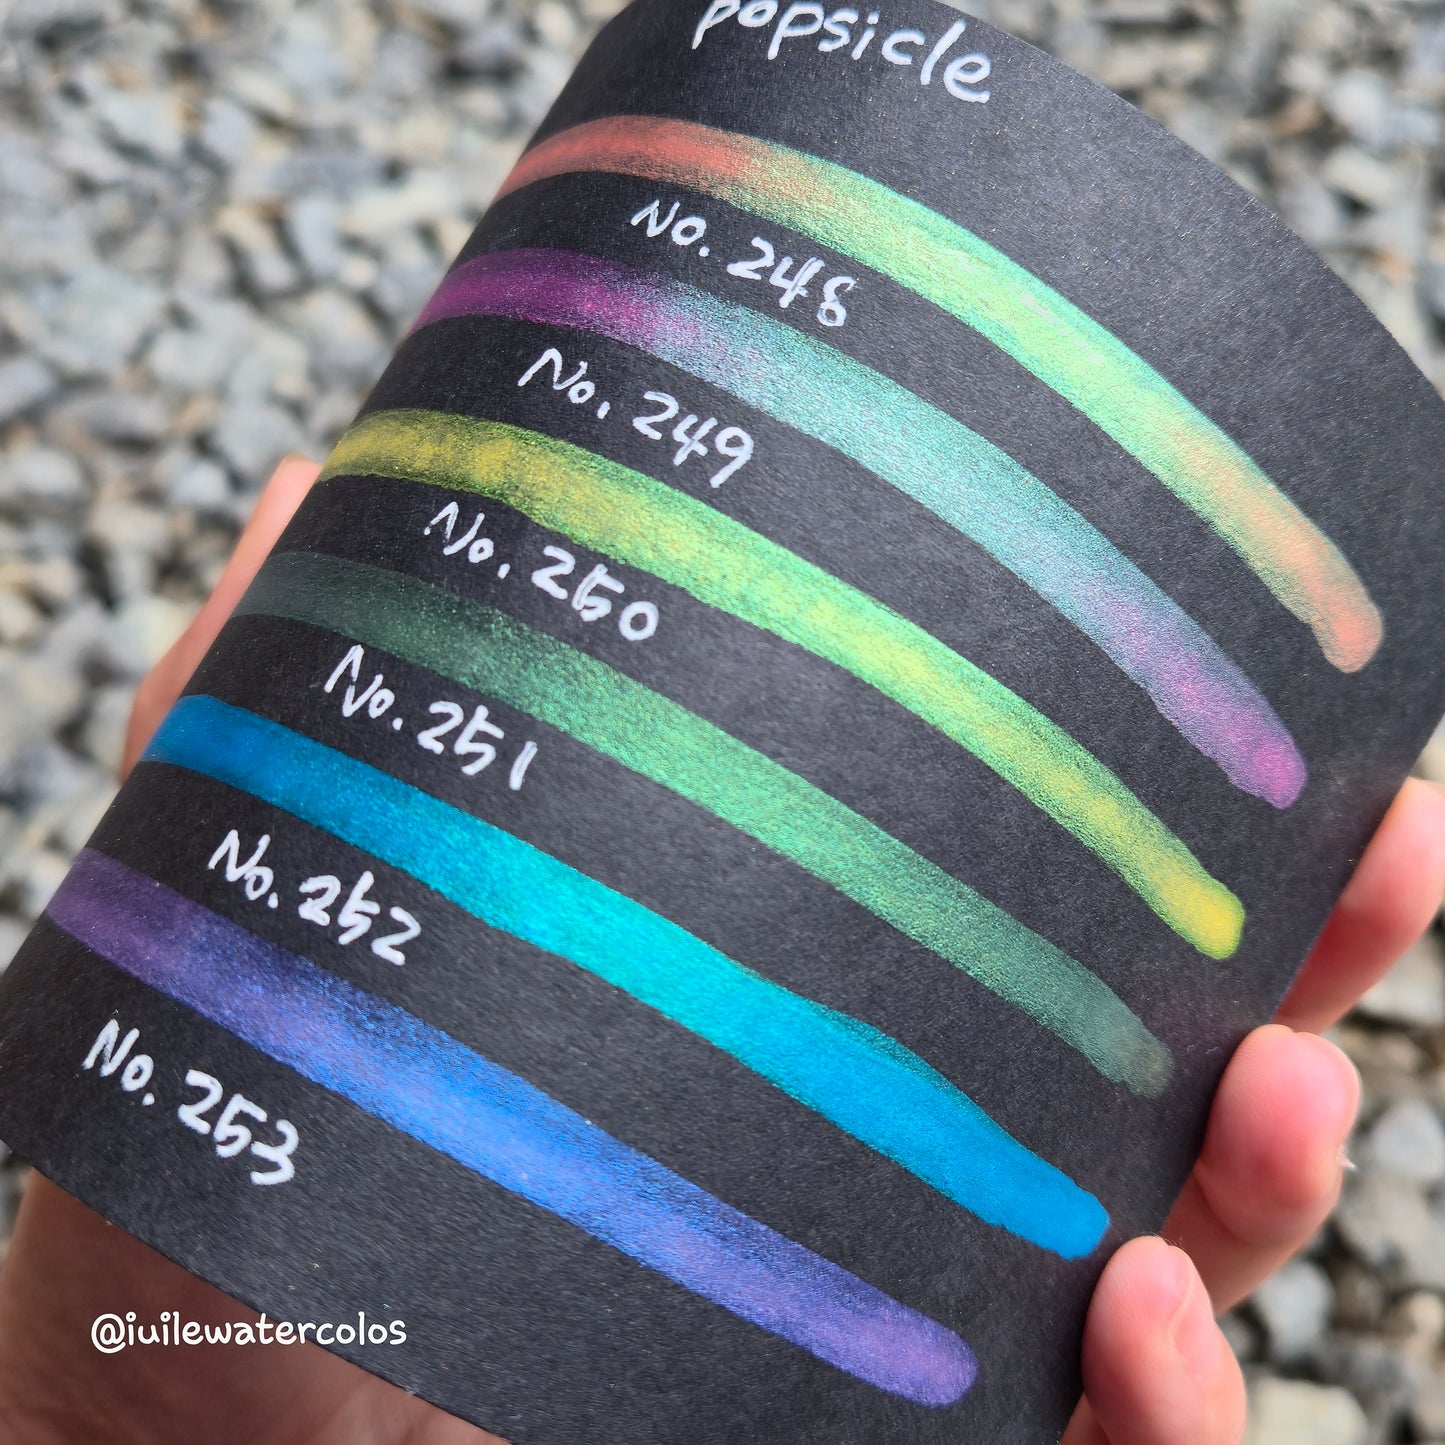 popsicle
No. 248
No. 249
No. 250
No. 251
No. 252
No. 253
@iuilewatercolos